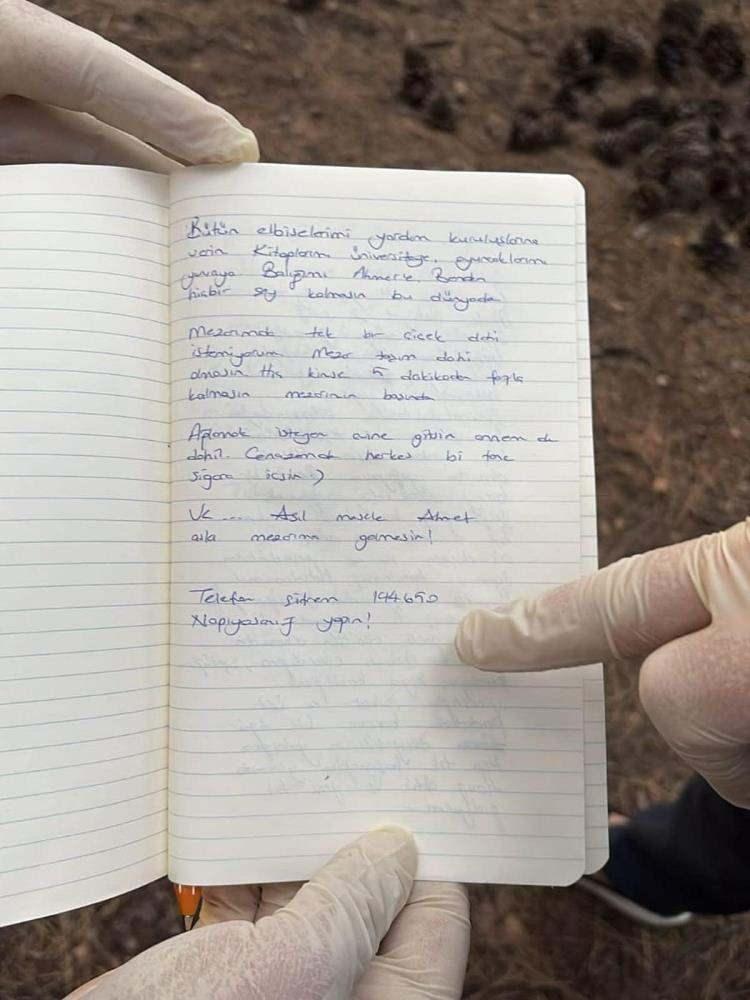 Bütün elbiselerimi yardım kuruluşlarına
verin Kitaplarım üniversiteye, oyuncaklarım
yuvaya Balığımı Ahmet'e, Benden
hiçbir şey kalmasın bu dünyada
Mezarımda tek bir çiçek dahi
istemiyorum Mezar taşım dahi
olmasın Hiç kimse 5 dakikadan fazla
kalmasın mezarımın başında
Ağlamak isteyen evine gitsin annem de
dahil. Cenazemde herkes bi tane
sigara içsin :)
Ve ... Asıl mesele Ahmet
asla mezarıma gelmesin!
Telefon şifrem 194650
Napıyosanız yapın!